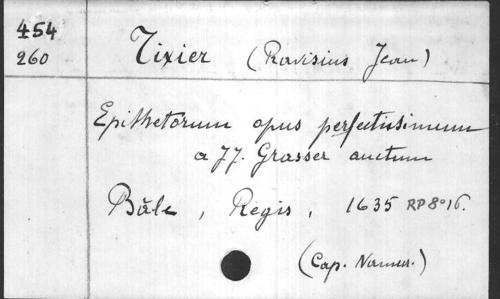 454
260
Tixier (Ravisius Jean)
Epithetorum opus perfectissimum
a JJ. Grasser auctum
Bâle, Regis, 1635 RP 8° 16.
(Cap. Namur.)